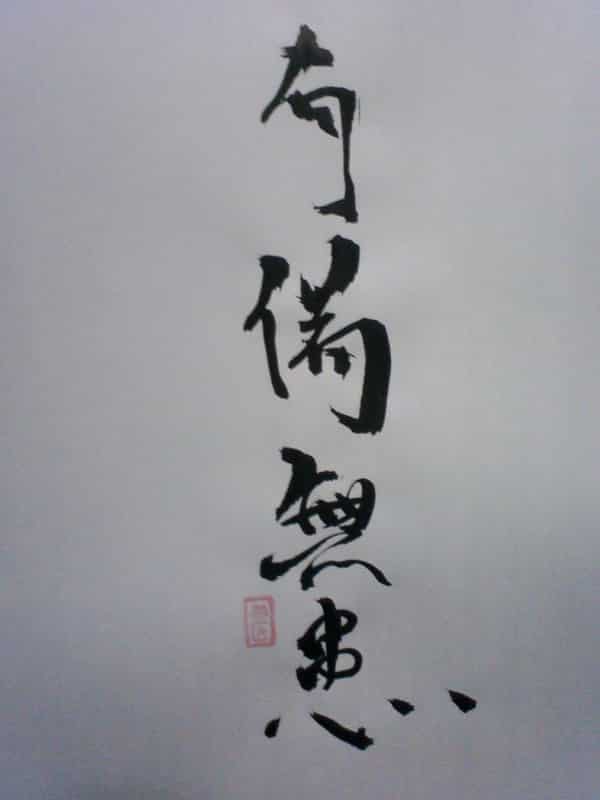 有備無患